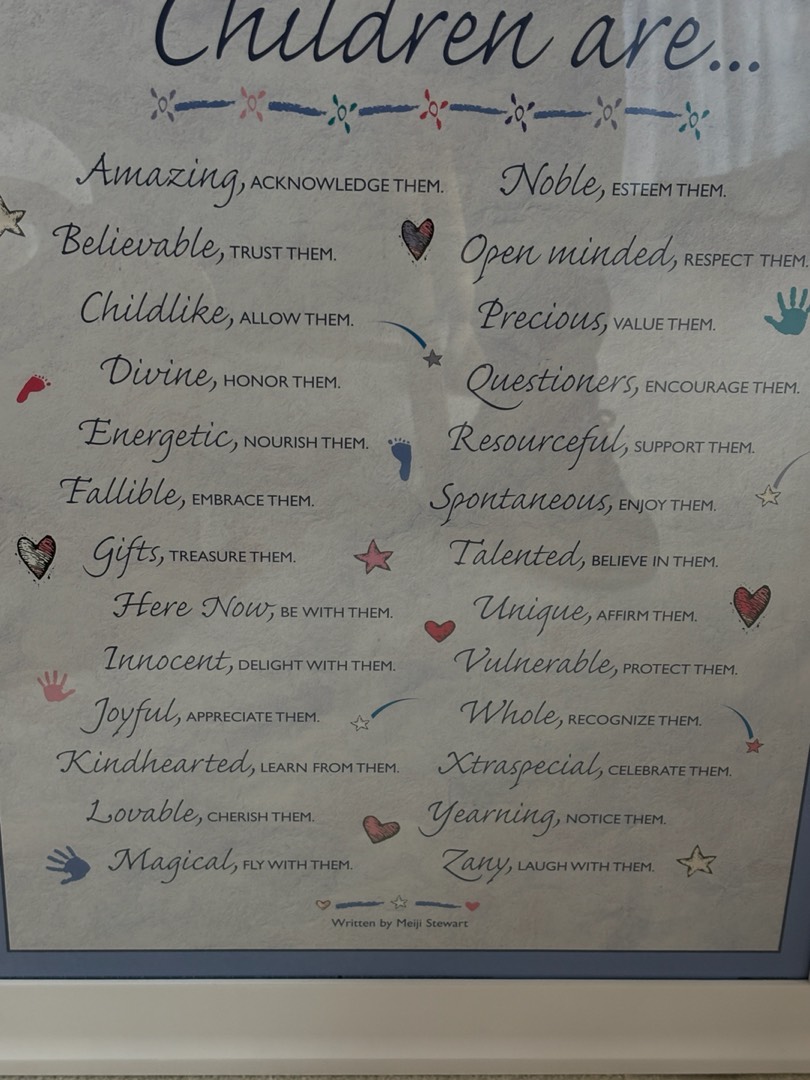 Children are...
Amazing, ACKNOWLEDGE THEM.
Believable, TRUST THEM.
Childlike, ALLOW THEM.
Divine, HONOR THEM.
Energetic, NOURISH THEM.
Fallible, EMBRACE THEM.
Gifts, TREASURE THEM.
Here Now, BE WITH THEM.
Innocent, DELIGHT WITH THEM.
Joyful, APPRECIATE THEM.
Kindhearted, LEARN FROM THEM.
Lovable, CHERISH THEM.
Magical, FLY WITH THEM.
Noble, ESTEEM THEM.
Open minded, RESPECT THEM.
Precious, VALUE THEM.
Questioners, ENCOURAGE THEM.
Resourceful, SUPPORT THEM.
Spontaneous, ENJOY THEM.
Talented, BELIEVE IN THEM.
Unique, AFFIRM THEM.
Vulnerable, PROTECT THEM.
Whole, RECOGNIZE THEM.
Xtraspecial, CELEBRATE THEM.
Yearning, NOTICE THEM.
Zany, LAUGH WITH THEM.
Written by Meiji Stewart